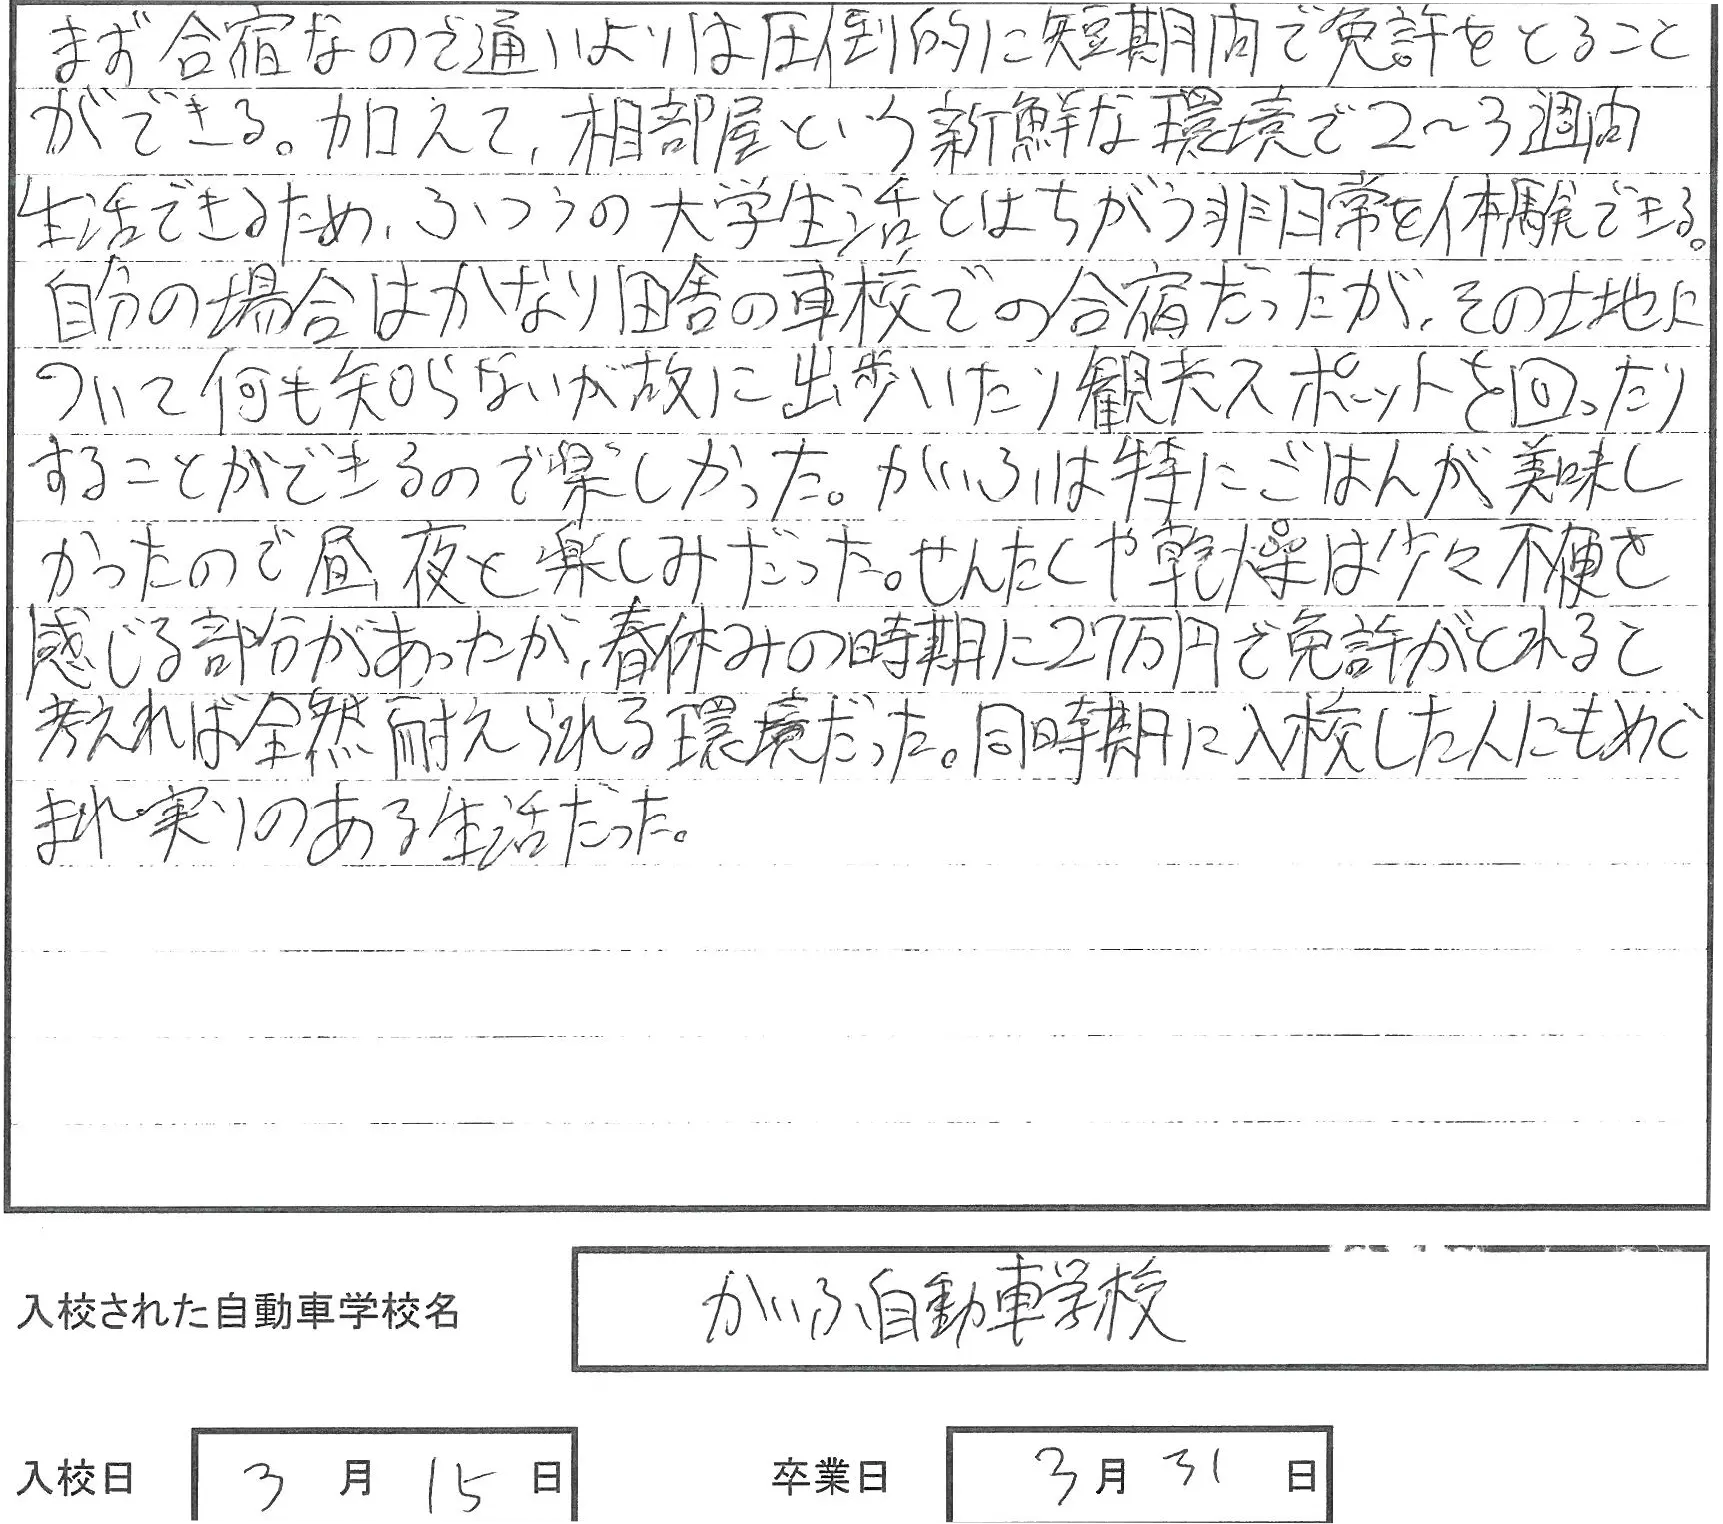 まず合宿なので通いよりは圧倒的に短期間で免許をとること
ができる。加えて、相部屋という新鮮な環境で2〜3週間
生活できるため、ふつうの大学生活とはちがう非日常を体験できる。
自分の場合はかなり田舎の車校での合宿だったが、その土地に
ついて何も知らないが故に出歩いたり観光スポットを回ったり
することができるので楽しかった。かいふは特にごはんが美味し
かったので昼、夜と楽しみだった。せんたくや乾燥は少々不便さ
感じる部分があったが、春休みの時期に27万円で免許がとれると
考えれば全然耐えられる環境だった。同時期に入校した人にもめぐ
まれ、実りのある生活だった。
入校された自動車学校名 かいふ自動車学校
入校日 3月15日 卒業日 3月31日